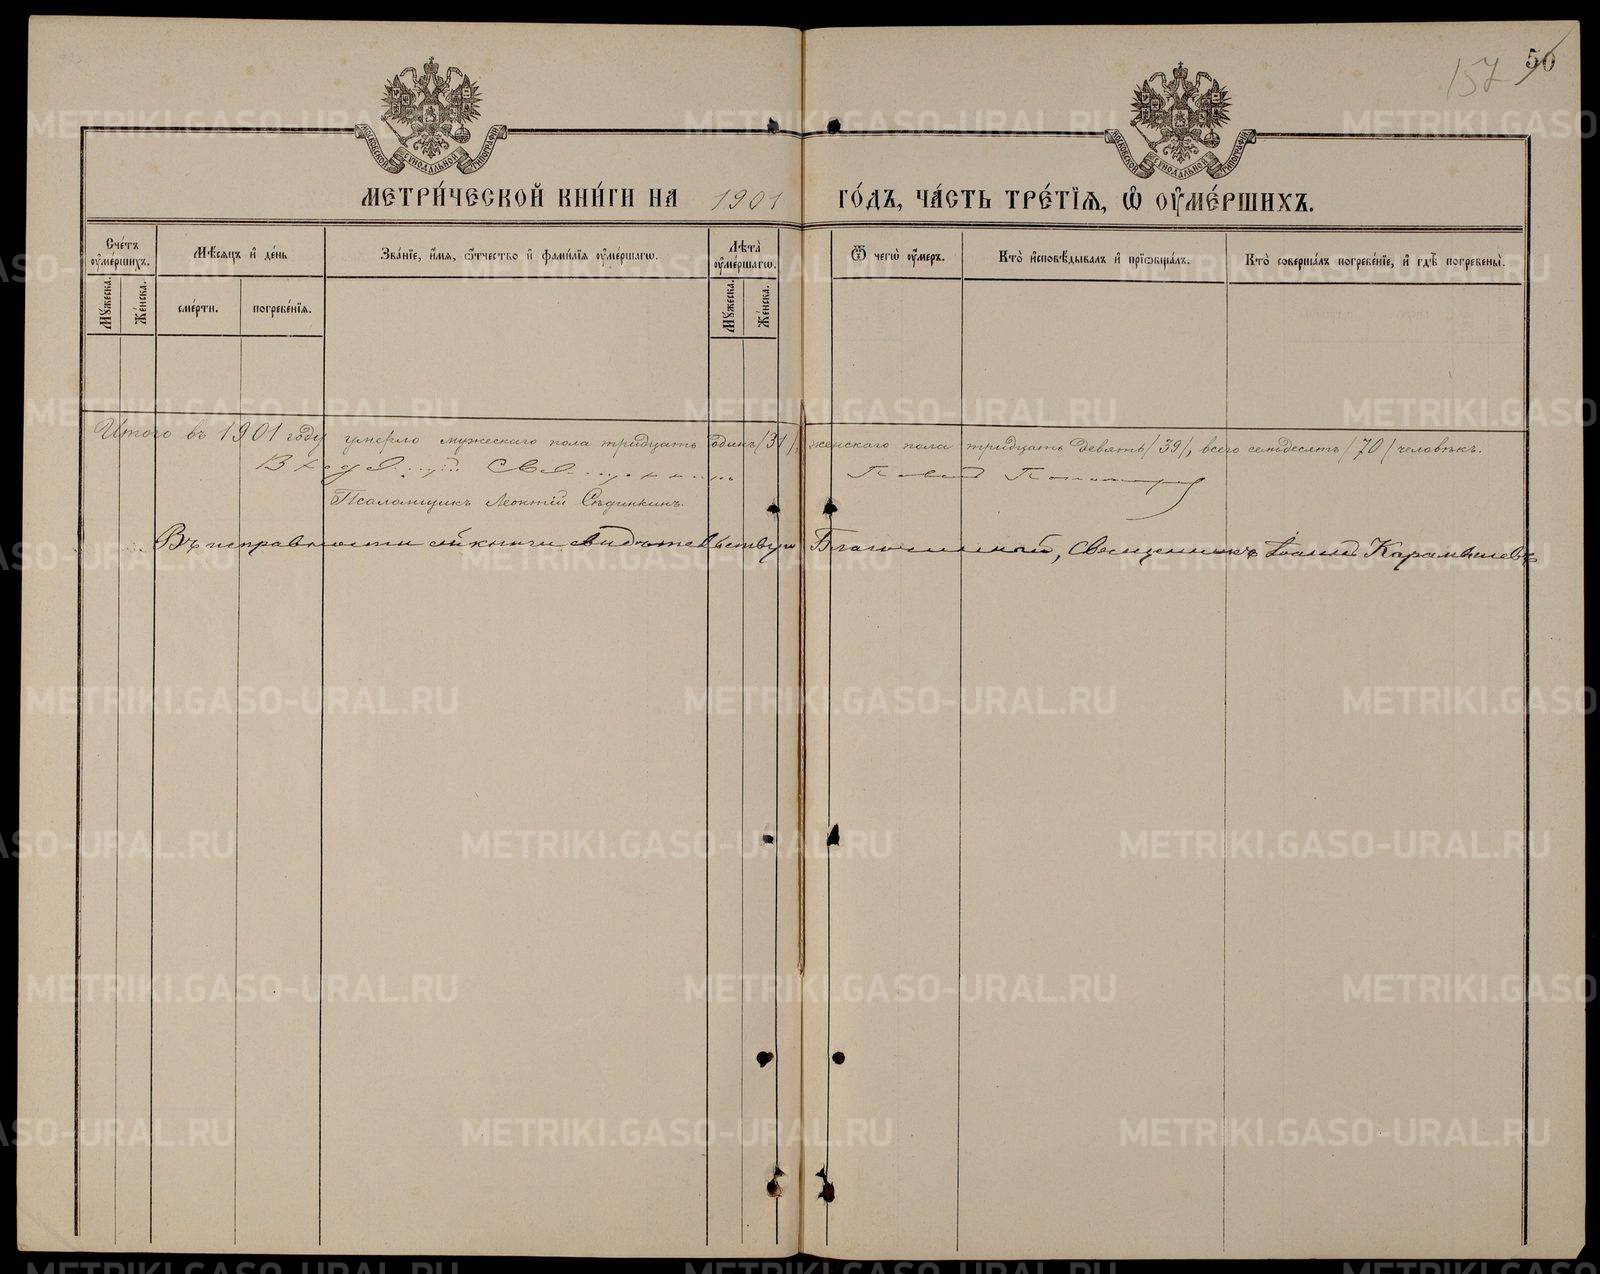 50
157
МОСКОВСКОЙ СѴНОДАЛЬНОЙ ТИПОГРАФІИ
МОСКОВСКОЙ СѴНОДАЛЬНОЙ ТИПОГРАФІИ
МЕТРИ́ЧЕСКОЙ КНИ́ГИ НА 1901 ГО́ДЪ, ЧА́СТЬ ТРЕ́ТІѦ, Ѡ҆ ОУ҆МЕ́РШИХЪ.
Сче́тъ оу҆ме́ршихъ.
Мѣ́сѧцъ и҆ де́нь
Зва́нїе, и҆́мѧ, ѻ҆́тчество и҆ фами́лїѧ оу҆ме́ршагѡ.
Лѣ́та оу҆ме́ршагѡ.
Ѿ чегѡ̀ оу҆́меръ.
Кто̀ и҆сповѣ́дывалъ и҆ прїѡбща́лъ.
Кто̀ соверша́лъ погребе́нїе, и҆ гдѣ̀ погребены̀.
Мꙋ́жеска.
Же́нска.
сме́рти.
погребе́нїѧ.
Мꙋ́жеска.
Же́нска.
Итого въ 1901 году умерло мужескаго пола тридцать одинъ /31/, женскаго пола тридцать девять /39/, всего семьдесятъ /70/ человѣкъ.
Священникъ Павелъ
Псаломщикъ Леонтій Сѣдинкинъ.
Въ исправности сей книги свидѣтельствую Благочинный, Священникъ Іоаннъ Карамышевъ
METRIKI.GASO-URAL.RU